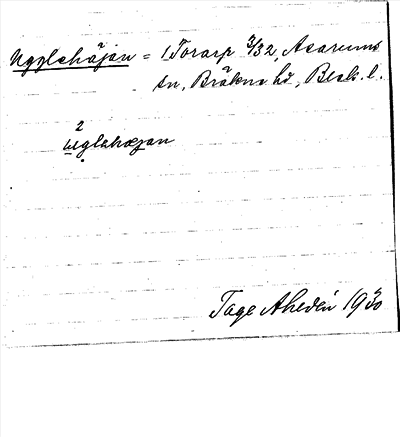 Ugglehöjan = 1 Torarp 3/32, Asarums
sn, Bräkne hd, Blek. l.
2
uglahœjan
Tage Ahedén 1930